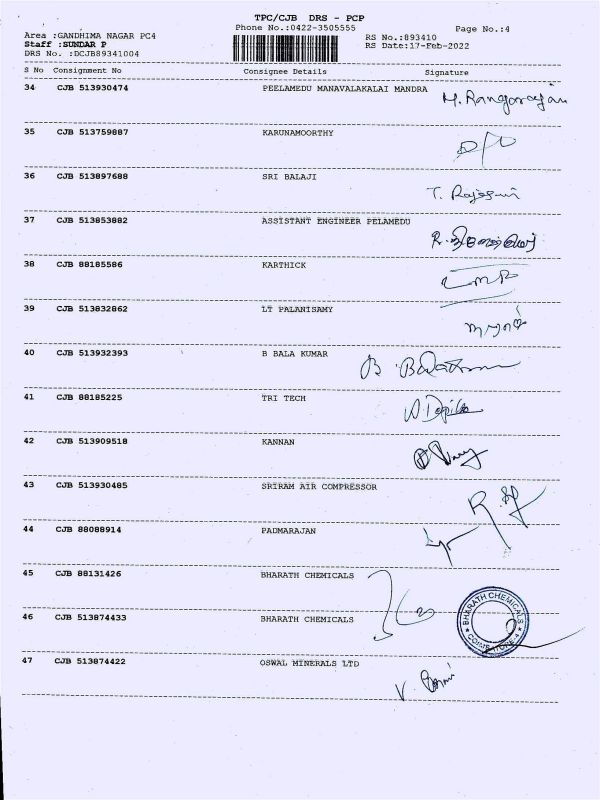 TPC/CJB DRS - PCP
Phone No.:0422-3505555
Page No.:4
Area :GANDHIMA NAGAR PC4
RS No.:893410
Staff :SUNDAR P
RS Date:17-Feb-2022
DRS No. :DCJB89341004
S No Consignment No Consignee Details Signature
34 CJB 513930474 PEELAMEDU MANAVALAKALAI MANDRA M. Rangarajan
35 CJB 513759887 KARUNAMOORTHY
36 CJB 513897688 SRI BALAJI T.
37 CJB 513853882 ASSISTANT ENGINEER PELAMEDU
38 CJB 88185586 KARTHICK
39 CJB 513832862 LT PALANISAMY
40 CJB 513932393 B BALA KUMAR B
41 CJB 88185225 TRI TECH
42 CJB 513909518 KANNAN
43 CJB 513930485 SRIRAM AIR COMPRESSOR
44 CJB 88088914 PADMARAJAN
45 CJB 88131426 BHARATH CHEMICALS
46 CJB 513874433 BHARATH CHEMICALS
BHARATH CHEMICALS
COIMBATORE-4
47 CJB 513874422 OSWAL MINERALS LTD V.